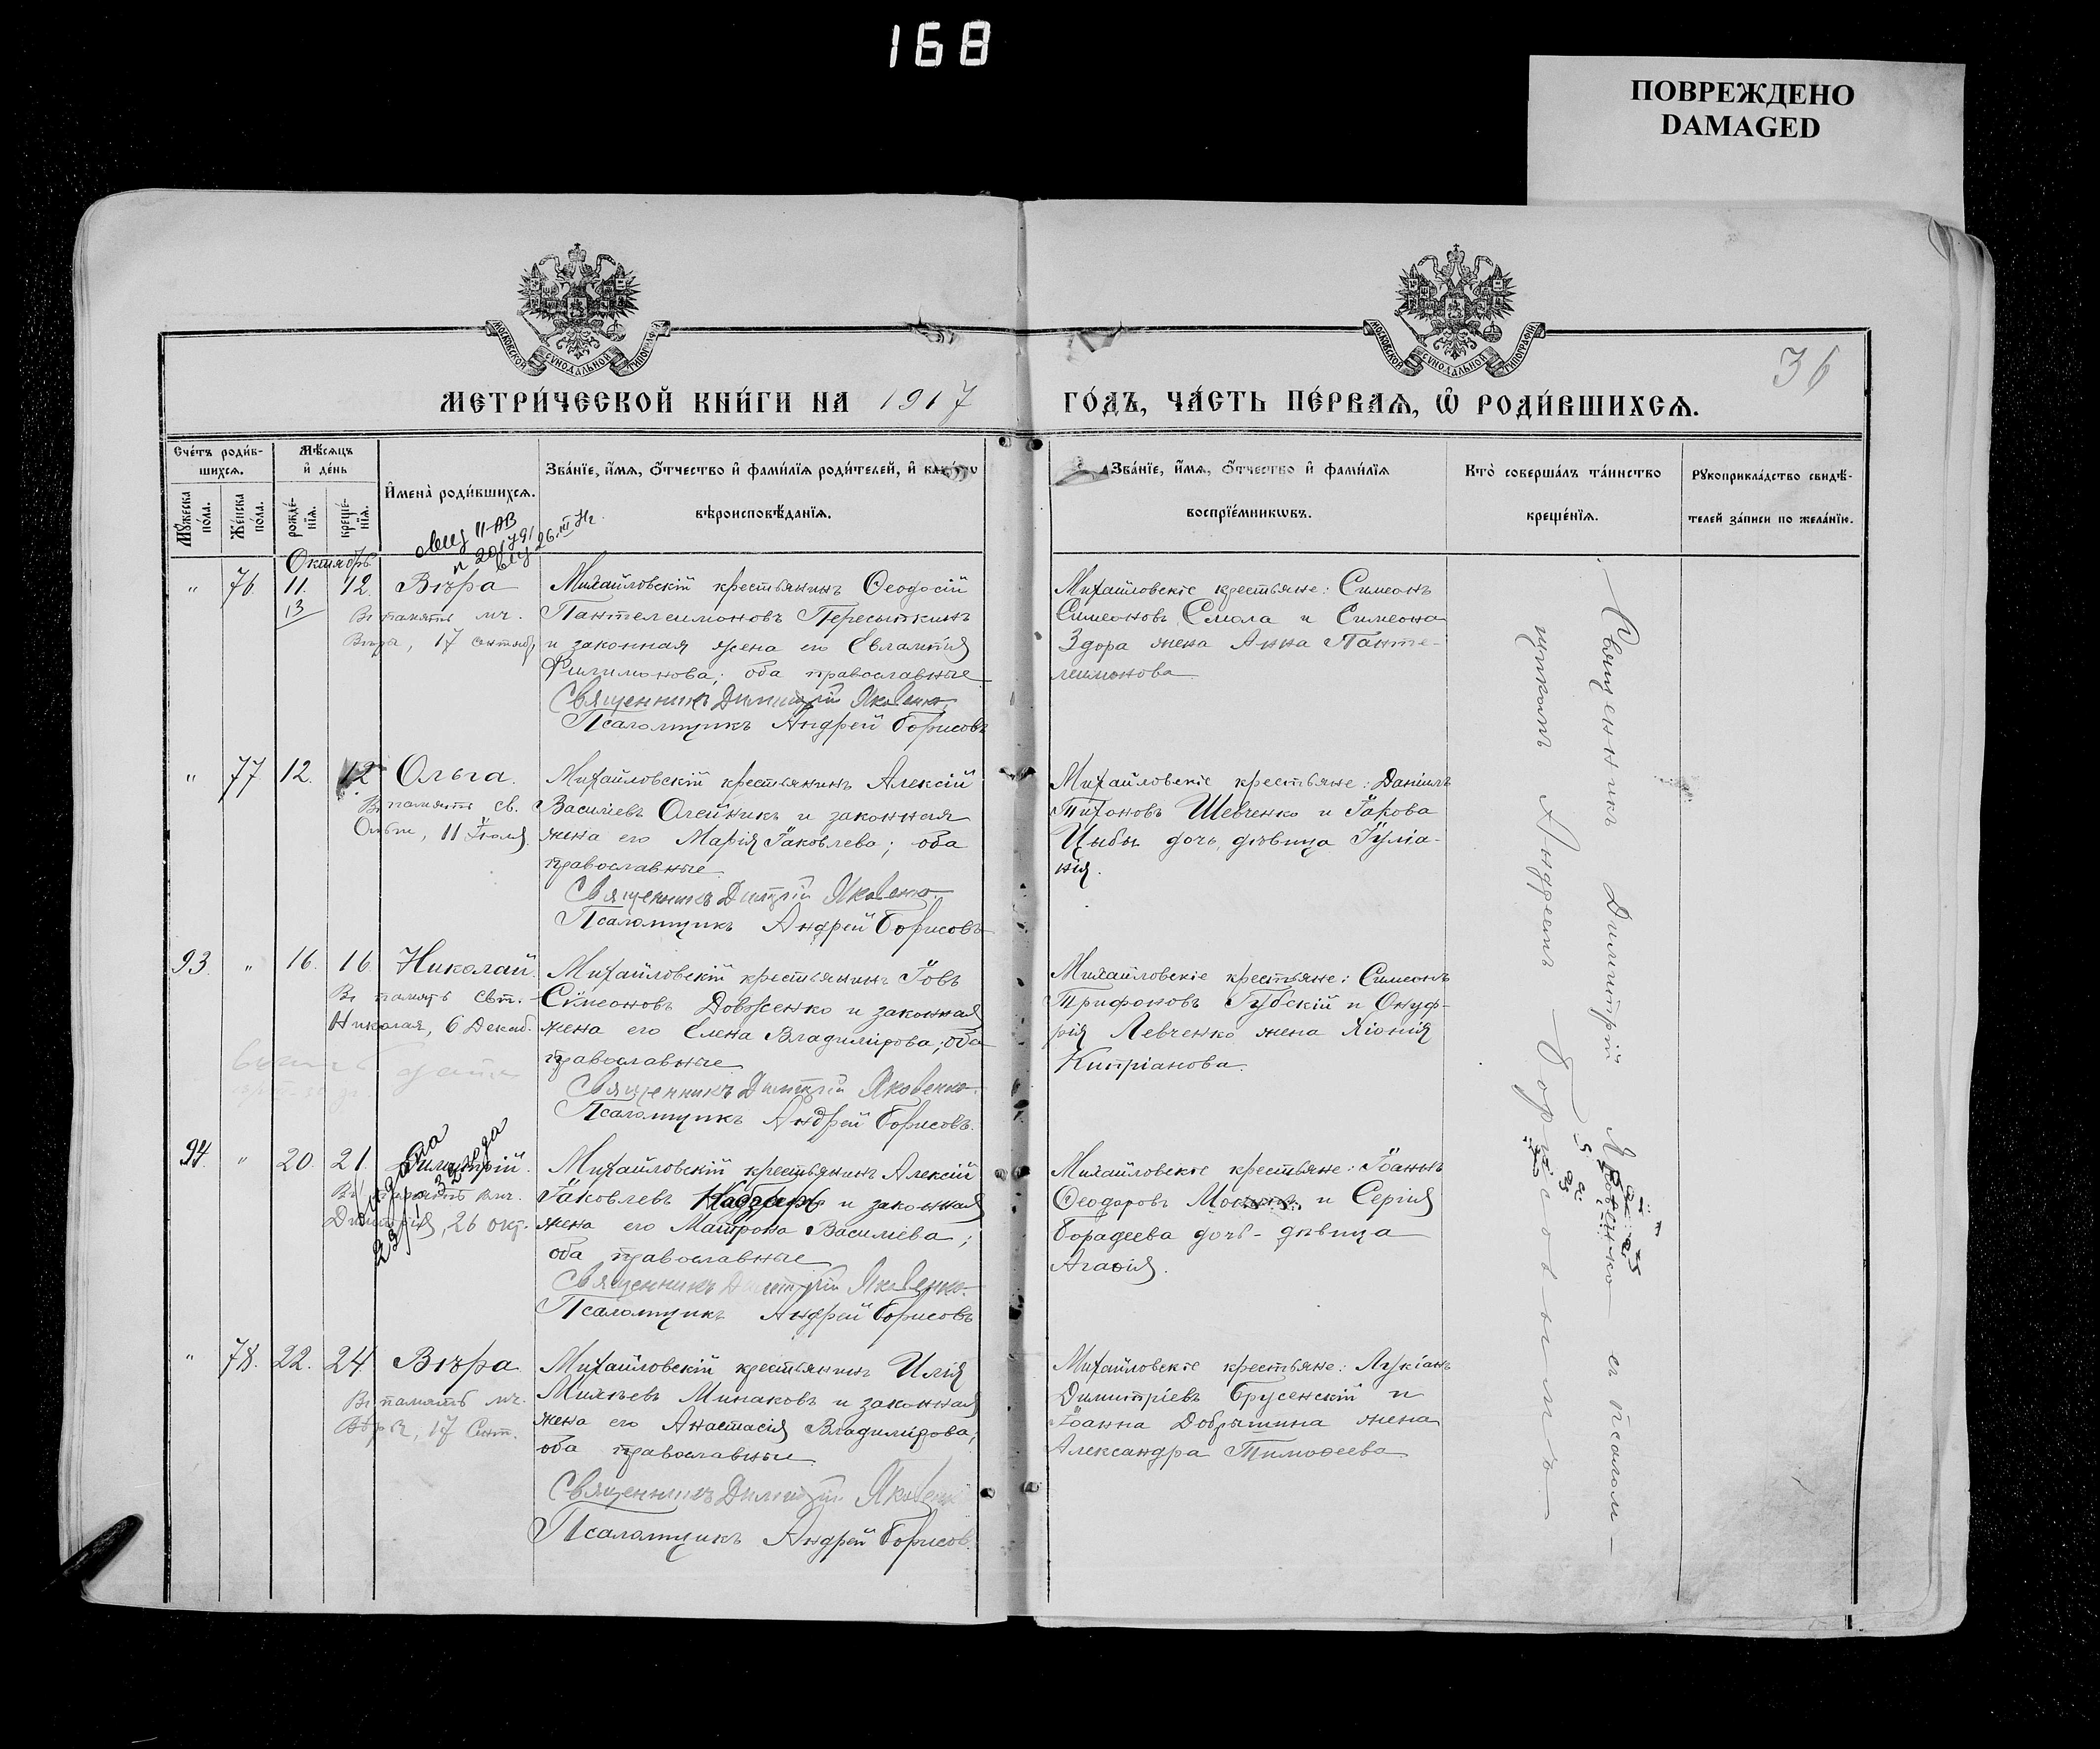 168
ПОВРЕЖДЕНО
DAMAGED
МОСКОВСКОЙ СѴНОДАЛЬНОЙ ТИПОГРАФІИ
МОСКОВСКОЙ СѴНОДАЛЬНОЙ ТИПОГРАФІИ
36
МЕТРИ́ЧЕСКОЙ КНИ́ГИ НА 1917 ГО́ДЪ, ЧА́СТЬ ПЕ́РВАѦ, Ѡ҆ РОДИ́ВШИХСѦ.
Сче́тъ роди́в-
шихсѧ.
Мѣ́сѧцъ
и҆ де́нь
Мꙋ́жеска
по́ла.
Же́нска
по́ла.
рожде́-
нїѧ.
креще́-
нїѧ.
И҆мена̀ роди́вшихсѧ.
Зва́нїе, и҆́мѧ, ѻ҆́тчество и҆ фами́лїѧ роди́телей, и҆
вѣроисповѣ́данїѧ.
Зва́нїе, и҆́мѧ, ѻ҆́тчество и҆ фами́лїѧ
воспрїе́мниковъ.
Кто̀ соверша́лъ та́инство
креще́нїѧ.
Рꙋкоприкла́дство свидѣ́-
телей за́писи по жела́нїю.
II-АВ
Октябрь
" 76. 11. 12. Вѣра
13
Въ память мч.
Вѣры, 17 сентяб.
Михайловскій крестьянинъ Ѳеодосій
Пантелеимоновъ Пересыпкинъ
и законная жена его Евлампія
Филимонова; оба православные
Священникъ Димитрій Яковенко.
Псаломщикъ Андрей Борисовъ
Михайловскіе крестьяне: Симеонъ
Симеоновъ Смола и Симеона
Здора жена Анна Панте-
леимонова
" 77 12. 12 Ольга.
Въ память св.
Ольги, 11 Іюля.
Михайловскій крестьянинъ Алексій
Василіевъ Олейникъ и законная
жена его Марія Іаковлева; оба
православные
Священникъ Димитрій Яковенко.
Псаломщикъ Андрей Борисовъ
Михайловскіе крестьяне: Даніилъ
Тихоновъ Шевченко и Іакова
Цыбы дочь, дѣвица Іуліа-
нія.
93. " 16. 16 Николай.
Въ память свт.
Николая, 6 Декаб.
Михайловскій крестьянинъ Іовъ
Симеоновъ Довженко и законная
жена его Елена Владимірова; оба
православные
Священникъ Димитрій Яковенко.
Псаломщикъ Андрей Борисовъ.
Михайловскіе крестьяне: Симеонъ
Трифоновъ Губскій и Онуф-
рія Левченко жена Хіонія
Кипріанова.
94. " 20. 21. Димитрій.
Въ память вмч.
Димитрія, 26 окт.
Михайловскій крестьянинъ Алексій
Іаковлевъ и законная
жена его Матрона Василіева;
оба православные
Священникъ Димитрій Яковенко.
Псаломщикъ Андрей Борисовъ
Михайловскіе крестьяне: Іоаннъ
Ѳеодоровъ и Сергія
Борадеева дочь - дѣвица
Агаѳія.
" 78. 22. 24. Вѣра
Въ память мч.
Вѣры, 17 Сент.
Михайловскій крестьянинъ Илія
Михѣевъ Минаковъ и законная
жена его Анастасія Владимірова;
оба православные.
Священникъ Димитрій Яковенко
Псаломщикъ Андрей Борисов.
Михайловскіе крестьяне: Лукіанъ
Димитріевъ Брусенскій и
Іоанна Добрышина жена
Александра Тимоѳеева
Священникъ Димитрій Яковенко съ псалом-
щикомъ Андреемъ Борисовымъ